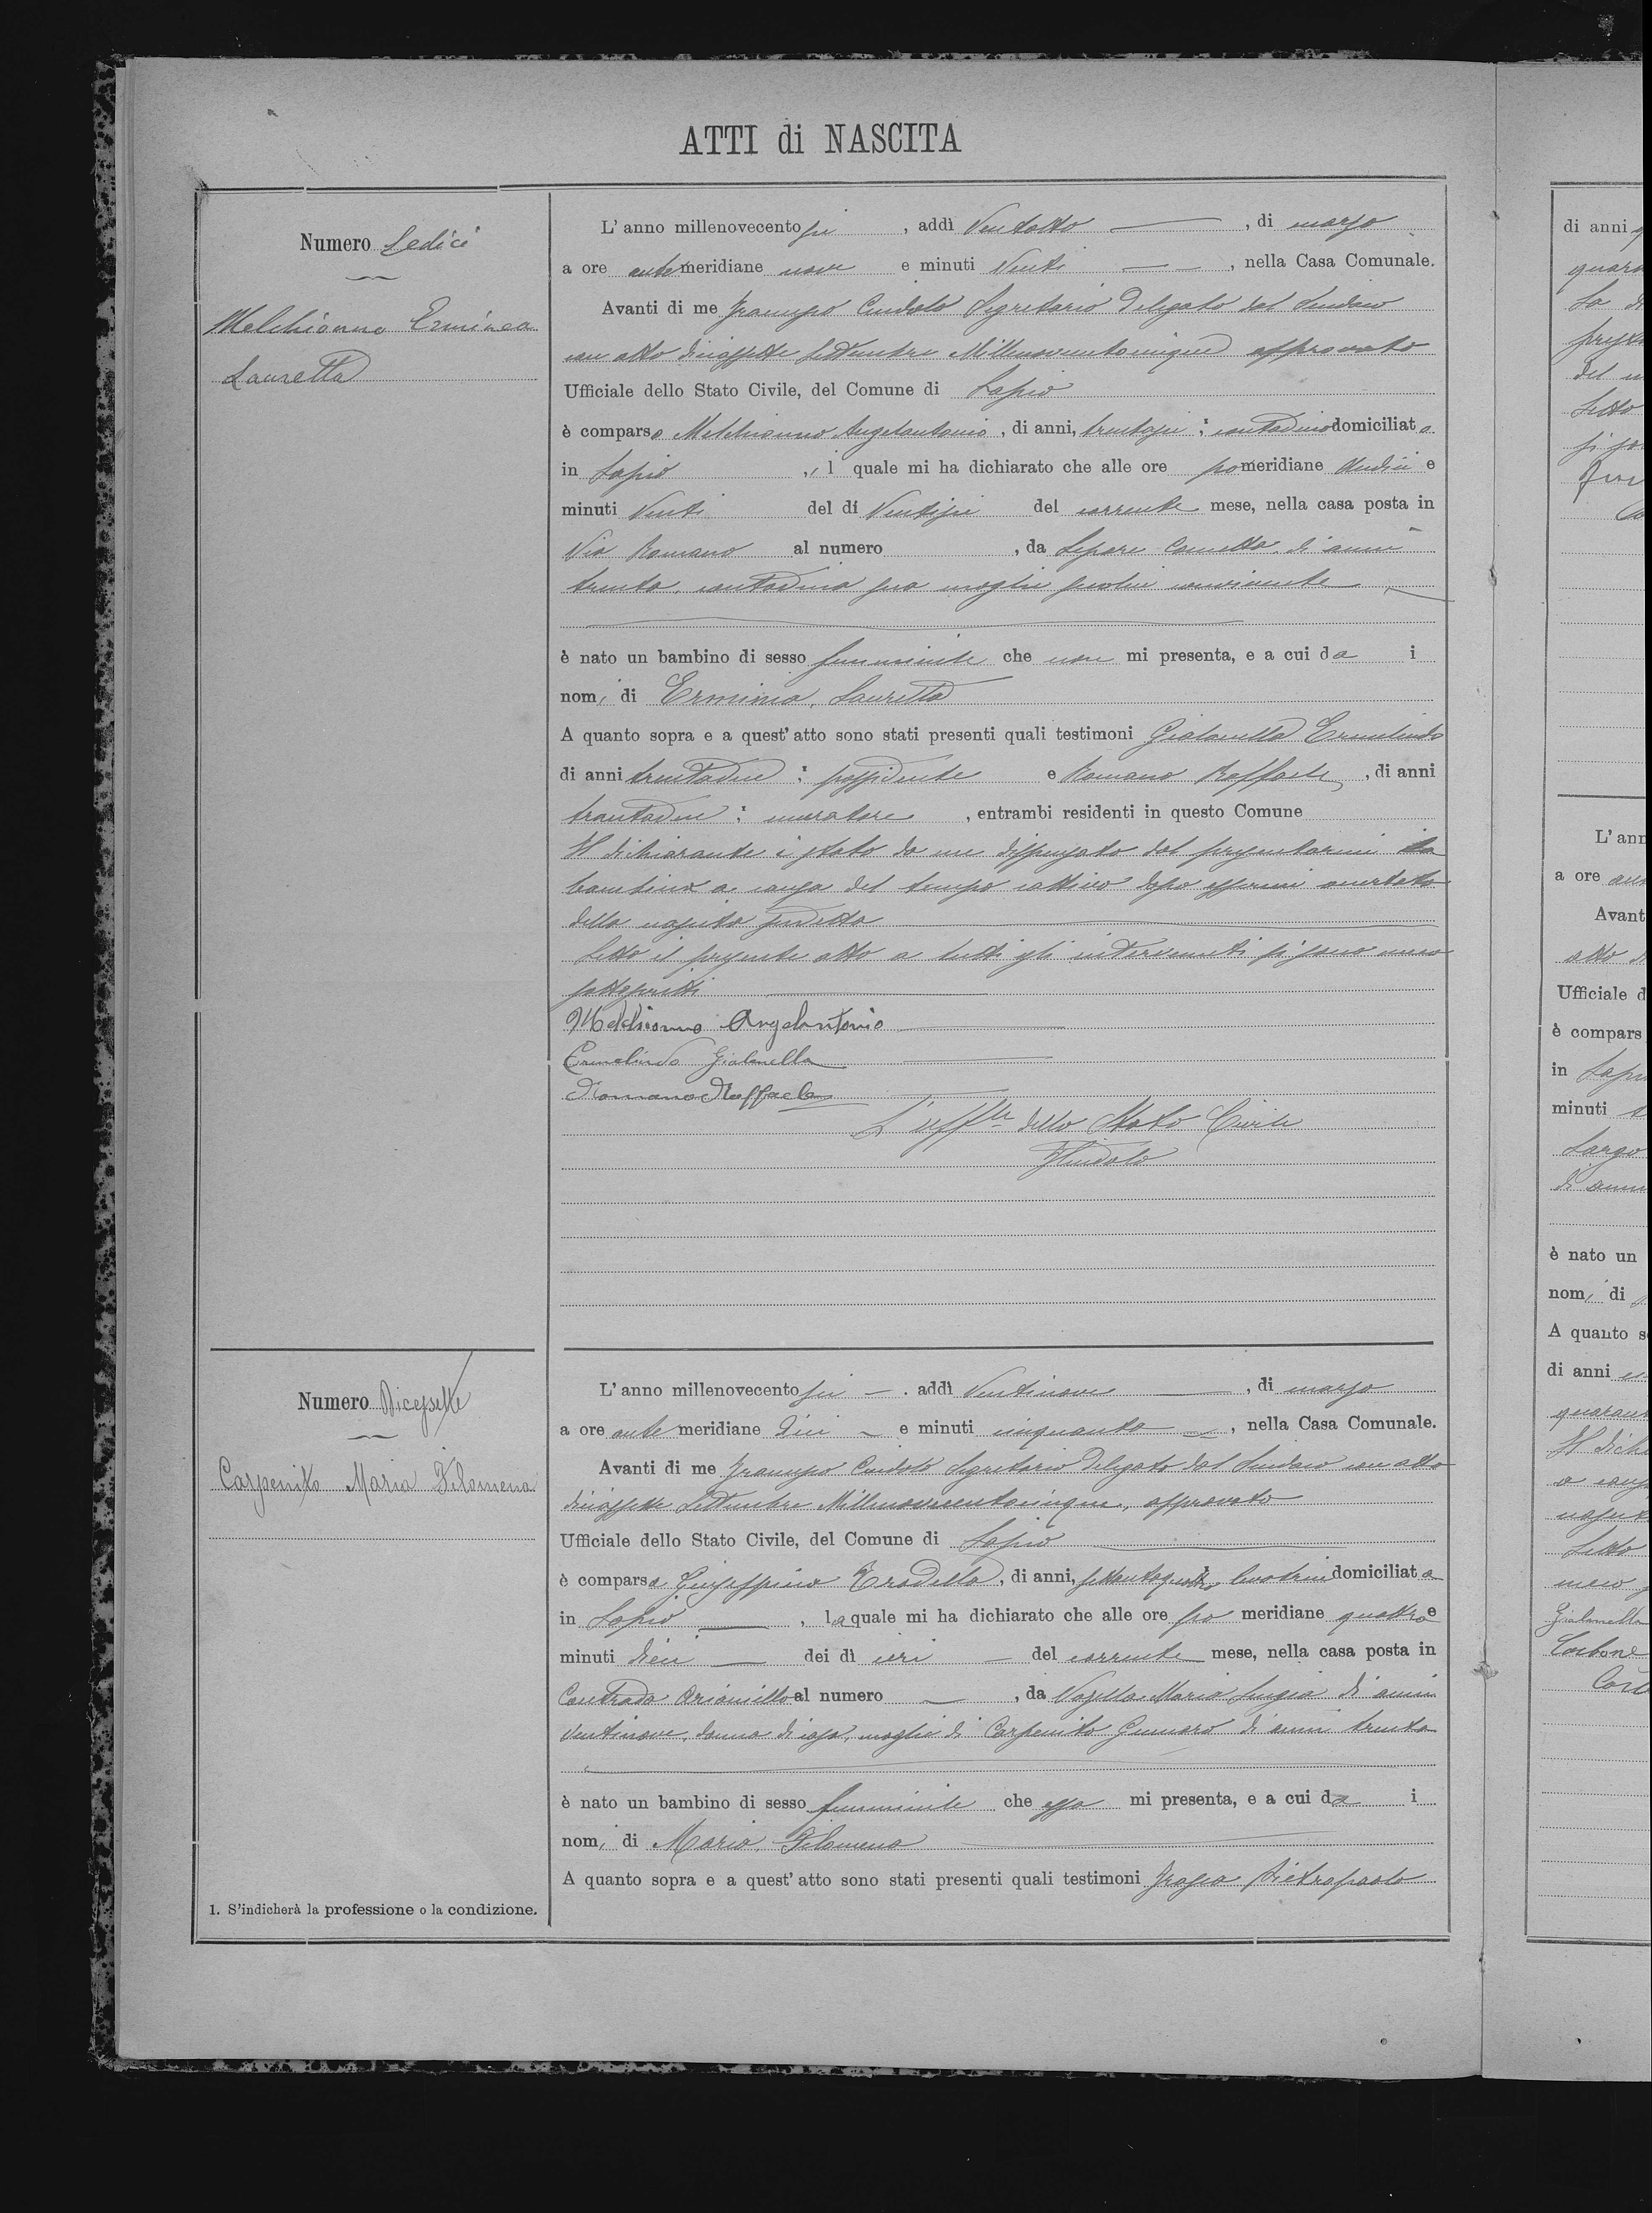 ATTI di NASCITA
Numero Sedici
Melchionno Erminia
Lauretta
L'anno millenovecento sei , addì Ventotto , di marzo
a ore antemeridiane nove e minuti Venti , nella Casa Comunale.
Avanti di me Cindolo Segretario Delegato dal Sindaco
con atto diciassette Settembre Millenovecentocinque approvato
Ufficiale dello Stato Civile, del Comune di Lapio
è comparso Melchionno Angelantonio, di anni, trentasei ; contadino domiciliato
in Lapio , il quale mi ha dichiarato che alle ore pomeridiane Undici e
minuti Venti del dì Ventisei del corrente mese, nella casa posta in
Via Romano al numero , da Lepore di anni
trenta, contadina sua moglie seco lui convivente
è nato un bambino di sesso femminile che non mi presenta, e a cui da i
nomi di Erminia, Lauretta
A quanto sopra e a quest'atto sono stati presenti quali testimoni Gialanella Ermelindo
di anni trentadue ; possidente e Romano Raffaele, di anni
trentadue ; muratore , entrambi residenti in questo Comune
Il dichiarante è stato da me dispensato dal presentarmi la
bambina a causa del tempo cattivo dopo essermi accertato
della nascita suddetta
Letto il presente atto a tutti gli intervenuti si sono meco
sottoscritti
Melchionno Angelantonio
Ermelindo Gialanella
Romano Raffaele
L'uffle dello Stato Civile
FCindolo
Numero Diciassette
Carpenito Maria Filomena
L'anno millenovecento sei . addì Ventinove , di marzo
a ore ante meridiane dieci e minuti cinquanta , nella Casa Comunale.
Avanti di me Cindolo Segretario Delegato dal Sindaco con atto
diciassette Settembre Millenovecentocinque, approvato
Ufficiale dello Stato Civile, del Comune di Lapio
è comparsa Giuseppina Tradella, di anni, settantaquattro, levatrice domiciliata
in Lapio , la quale mi ha dichiarato che alle ore po meridiane quattro e
minuti dieci dei dì ieri del corrente mese, nella casa posta in
Contrada Arianiello al numero , da Vozella Maria Luigia di anni
Ventinove, donna di casa, moglie di Carpenito Gennaro di anni trenta
è nato un bambino di sesso femminile che essa mi presenta, e a cui da i
nomi di Maria, Filomena
A quanto sopra e a quest'atto sono stati presenti quali testimoni Pietropaolo
1. S'indicherà la professione o la condizione.
di anni
L'ann
a ore
Avant
Ufficiale d
è compars
in Lapio
minuti
Largo
di anni
è nato un
nomi di
A quanto s
di anni
Letto
meco
Gialanella
Carbone